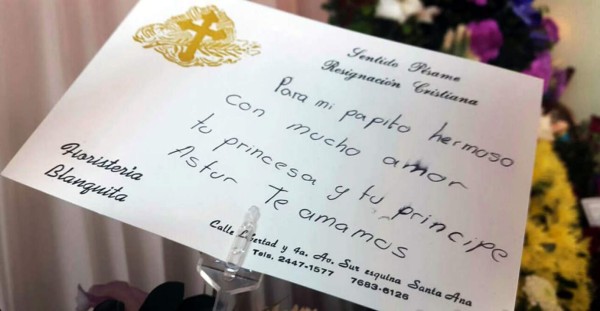 Sentido Pésame
Resignación Cristiana
Para mi papito hermoso
con mucho amor
tu princesa y tu principe
Astur Te amamos
Floristeria
Blanquita
Calle Libertad y 4a. Av. Sur esquina Santa Ana
Tels. 2447-1577 7683-6126